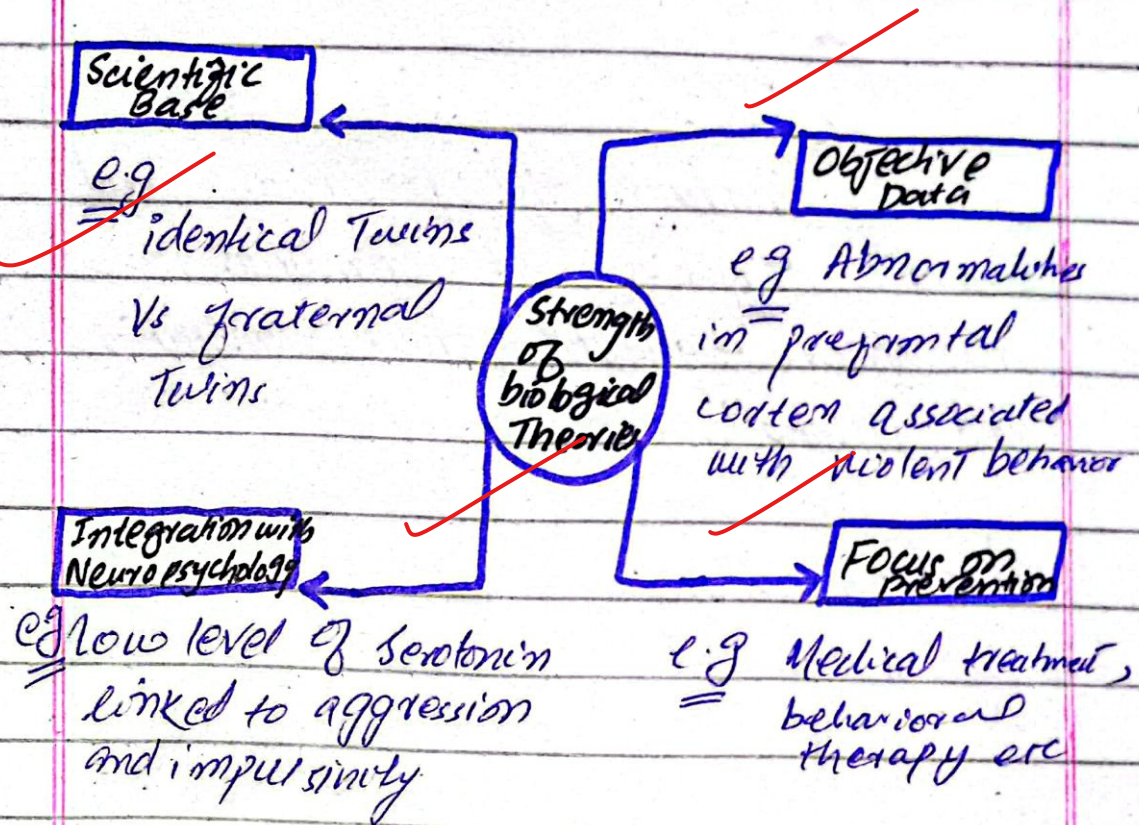 Scientific
Base
e.g
identical Twins
Vs fraternal
Twins
Objective
Data
eg Abnormalities
in prefrontal
cortex associated
with violent behavior
Strength
of
biological
Theories
Integration with
Neuropsychology
eg low level of Serotonin
linked to aggression
and impulsivity
Focus on
prevention
e.g Medical treatment,
behavioral
therapy etc